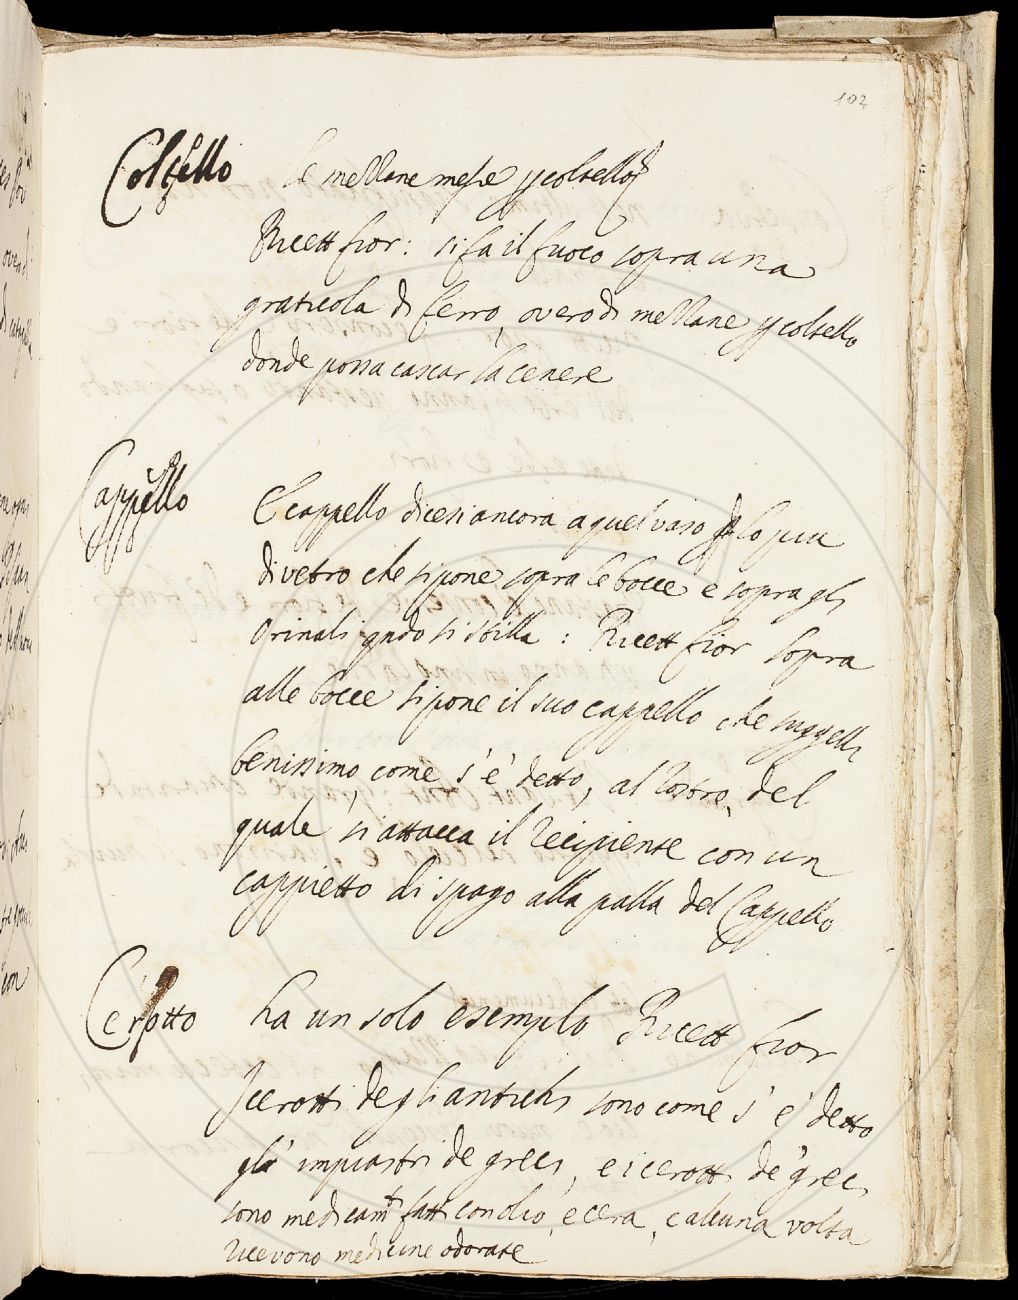 102
Coltello le mezzane messe p coltello
Ricett fior: si fa il fuoco sopra una
graticola di ferro, overo di mezzane p coltello
donde possa cascar la cenere
Cappello E cappello dicesi ancora a quel vaso p lo più
di vetro che si pone sopra le bocce e sopra gli
orinali qndo si stilla: Ricett fior sopra
alle bocce si pone il suo cappello che suggelli
benissimo, come s'è detto, al rostro, del
quale si attacca il recipiente con un
cappietto di spago alla palla del Cappello
Cerotto ha un solo esemplo Ricett fior
I cerotti degli antichi sono come s'è detto
gli impiastri de greci, e i cerotti de greci
sono medicamti fatti con olio, e cera, e alcuna volta
ricevono medicine odorate